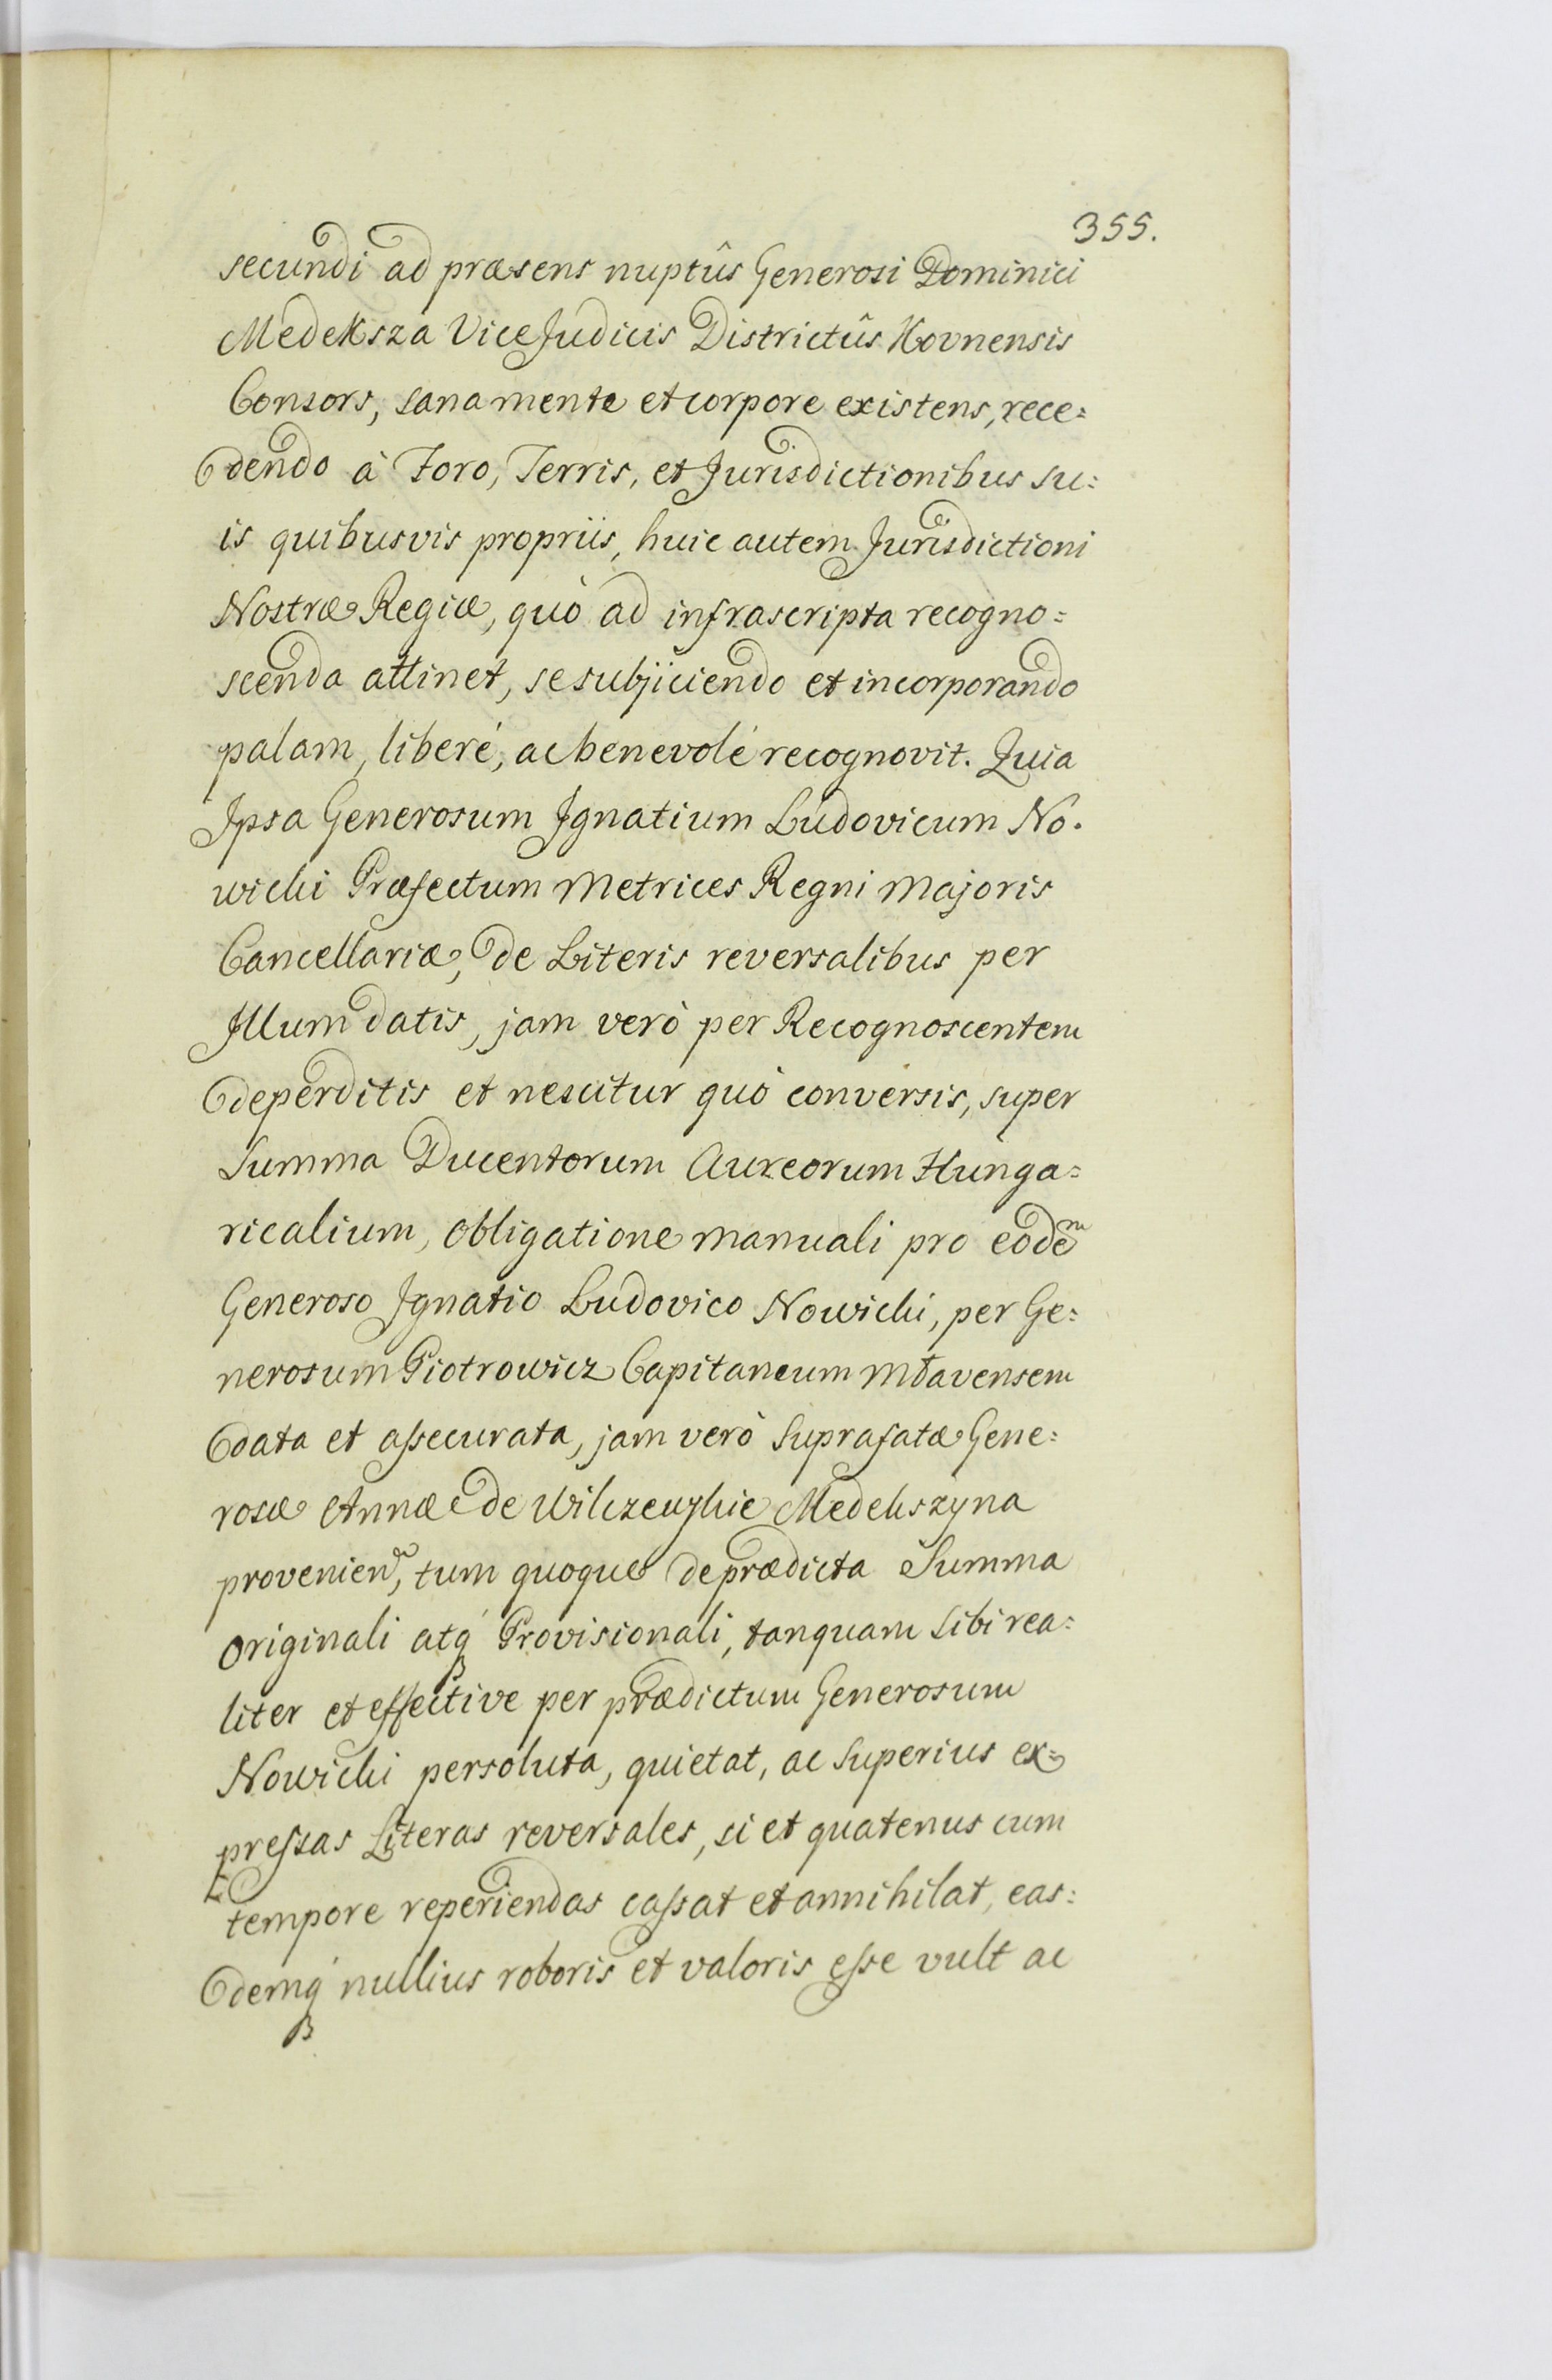 355.
secundi ad præsens nuptûs Generosi Dominici
Medeksza ViceJudicis Districtûs Kovnensis
Consors, sana mente et corpore existens, rece=
dendo à Foro, Terris, et Jurisdictionibus su=
is quibusvis propriis, huic autem Jurisdictioni
Nostræ Regiæ, quò ad infrascripta recogno=
scenda attinet, se subjiciendo et incorporando
palam, liberé, ac benevolé recognovit. Quia
Ipsa Generosum Ignatium Ludovicum No.
wicki Præfectum Metrices Regni Majoris
Cancellariæ, de Literis reversalibus per
Illum datis, jam verò per Recognoscentem
deperditis et nescitur quò conversis, super
Summa Ducentorum Aureorum Hunga=
ricalium, obligatione manuali pro eodẽm
Generoso Ignatio Ludovico Nowicki, per Ge=
nerosum Piotrowicz Capitaneum Mtavensem
data et assecurata, jam verò Suprafatæ Gene=
rosæ Annæ de Wilczewskie Medekszyna
provenien, tum quoque de prædicta Summa
originali atq́ Provisionali, tanquam sibi rea=
liter et effective per prædictum Generosum
Nowicki persoluta, quietat, ac Superius ex=
pressas Literas reversales, si et quatenus cum
tempore reperiendas cassat et annihilat, eas=
demq́ nullius roboris et valoris esse vult ac